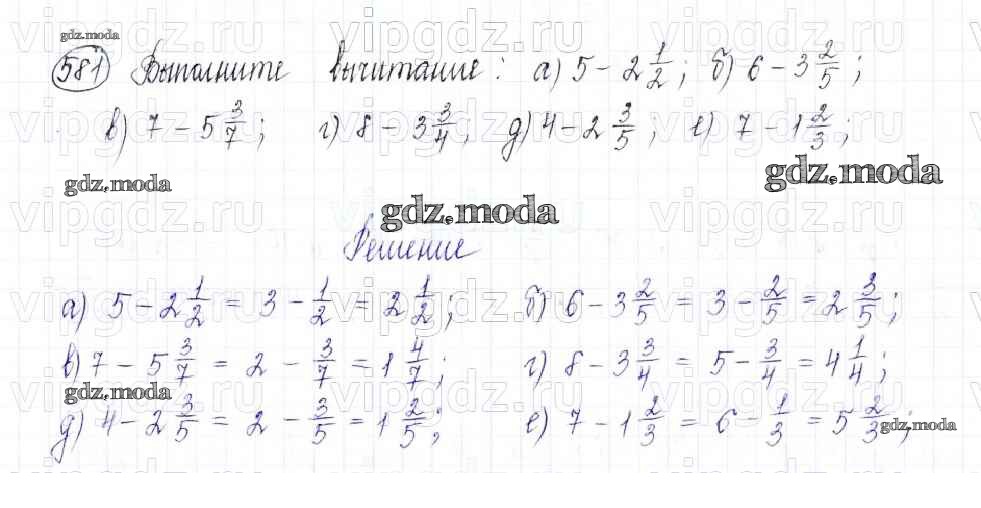 gdz.moda
581 Выполните вычитание: а) 5 - 2 1/2; б) 6 - 3 2/5;
в) 7 - 5 3/7; г) 8 - 3 3/4; д) 4 - 2 3/5; е) 7 - 1 2/3;
gdz.moda gdz.moda
gdz.moda
Решение
а) 5 - 2 1/2 = 3 - 1/2 = 2 1/2; б) 6 - 3 2/5 = 3 - 2/5 = 2 3/5;
в) 7 - 5 3/7 = 2 - 3/7 = 1 4/7; г) 8 - 3 3/4 = 5 - 3/4 = 4 1/4;
gdz.moda
д) 4 - 2 3/5 = 2 - 3/5 = 1 2/5; е) 7 - 1 2/3 = 6 - 1/3 = 5 2/3;
gdz.moda
vipgdz.ru vipgdz.ru vipgdz.ru vipgdz.ru